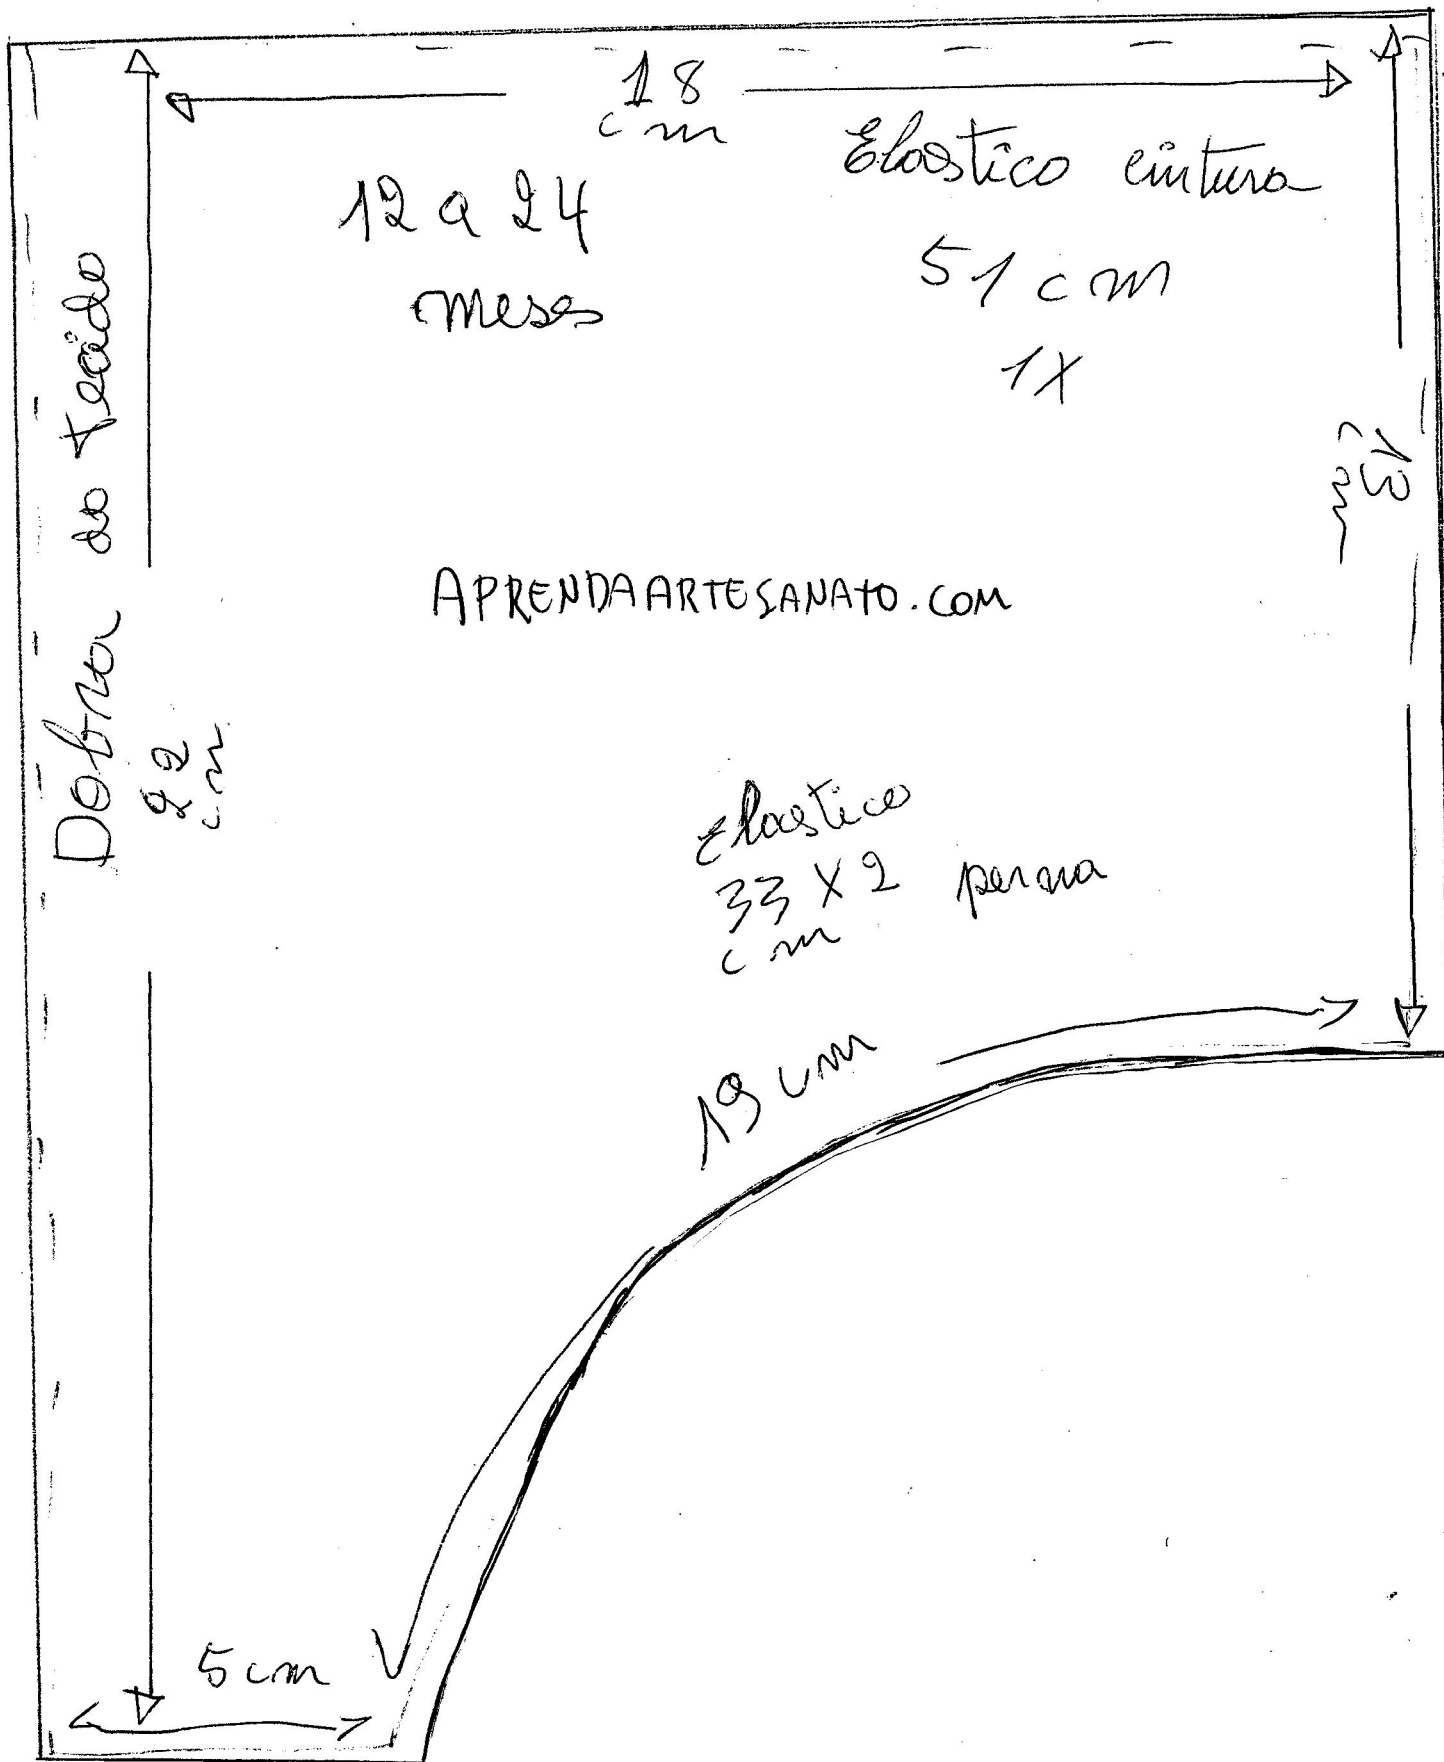 18
cm
12 a 24
meses
Elastico cintura
51 cm
1X
Dobra do Tecido
13
cm
APRENDAARTESANATO.COM
22
cm
Elastico
33 X 2 perna
cm
19 cm
5 cm